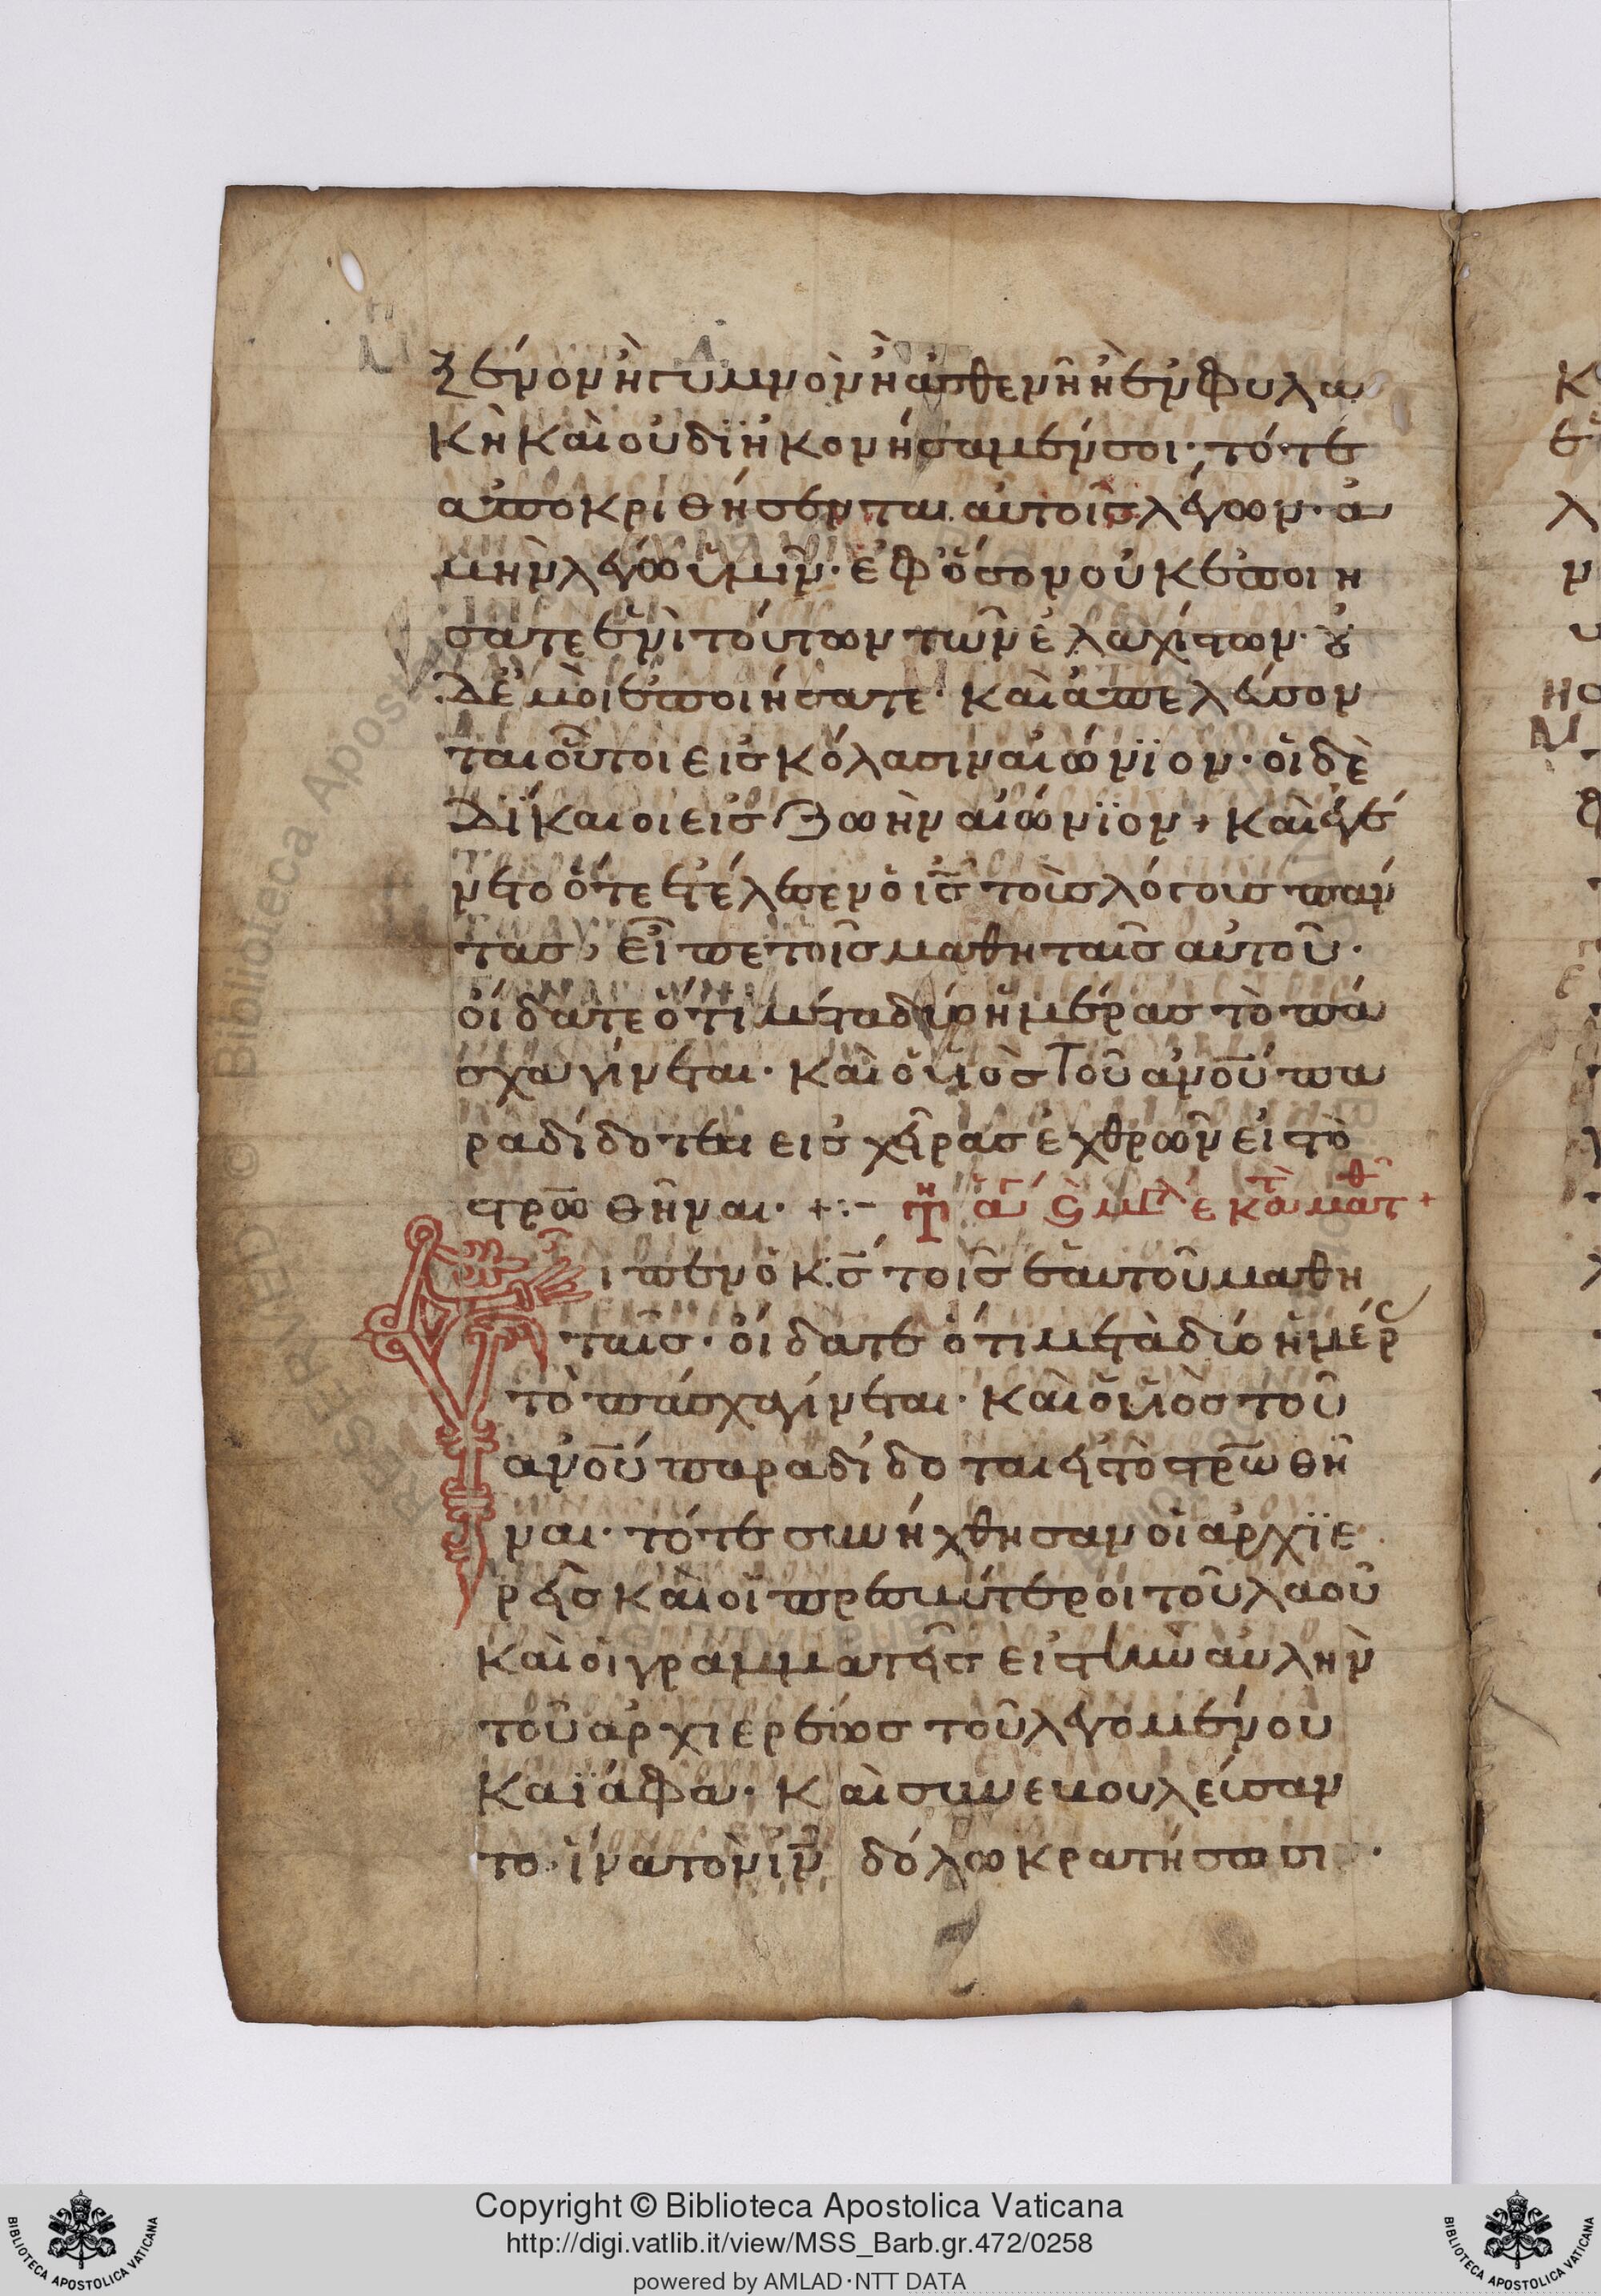 ξένον ἢ γυμνὸν ἢ ἀσθενῆ ἢ ἐν φυλα
κῆ καὶ οὐ διηκονήσαμέν σοι· τότε
ἀποκριθήσεται αὐτοῖς λέγων· ἀ
μὴν λέγω ὑμῖν· ἐφ' ὅσον οὐκ ἐποιη
σατε ἑνὶ τούτων τῶν ἐλαχίστων· οὐ
δὲ ἐμοὶ ἐποιήσατε· καὶ ἀπελεύσον
ται οὗτοι εἰς κόλασιν αἰώνϊον· οἱ δὲ
δίκαιοι εἰς ζωὴν αἰώνϊον + καὶ ἐγέ
νετο ὅτε ἐτέλεσεν ὁ ις τοὺς λόγους παν
τας, εἶπε τοῖς μαθηταῖς αὐτοῦ·
οἴδατε ὅτι μετα δύο ἡμέρας τὸ πά
σχα γίνεται· καὶ ὁ υἱὸς τοῦ ανου πα
ραδίδοται εἰς χεῖρας ἐχθρῶν εἰς τὸ
στρωθῆναι· +:- τῃ αγ ϛ μεγλ ε κατ ματθ +
Εἶπεν ὁ κς τοῖς ἑαυτοῦ μαθη
ταῖς· οἴδατε ὅτι μετὰ δύο ἡμέρ
τὸ πάσχα γίνεται· καὶ ὁ υἱὸς τοῦ
ανου παραδίδοται εἰς τὸ στρωθῆ
ναι· τότε συνήχθησαν οἱ ἀρχϊε
ρεῖς καὶ οἱ πρεσβύτεροι τοῦ λαοῦ
καὶ οἱ γραμματεῖς εἰς τὴν αὐλὴν
τοῦ ἀρχιερέως τοῦ λεγομένου
Καϊάφα· Καὶ συνεβουλεύσαν
το· ἵνα τὸν ιν δόλω κρατήσωσι ·
Copyright © Biblioteca Apostolica Vaticana
http://digi.vatlib.it/view/MSS_Barb.gr.472/0258
powered by AMLAD·NTT DATA
BIBLIOTECA APOSTOLICA VATICANA
BIBLIOTECA APOSTOLICA VATICANA